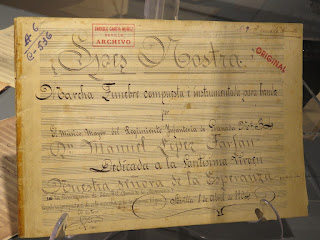 ENRIQUE GARCIA MUÑOZ
SEVILLA
ARCHIVO
ORIGINAL
Spes Nostra
Marcha Fúnebre compuesta e instrumentada para banda
por
El Músico Mayor del Regimiento Infantería de Granada
Dn Manuel López Farfán
Dedicada a la Santísima Virgen
Nuestra señora de la Esperanza
Sevilla 1 de Abril de